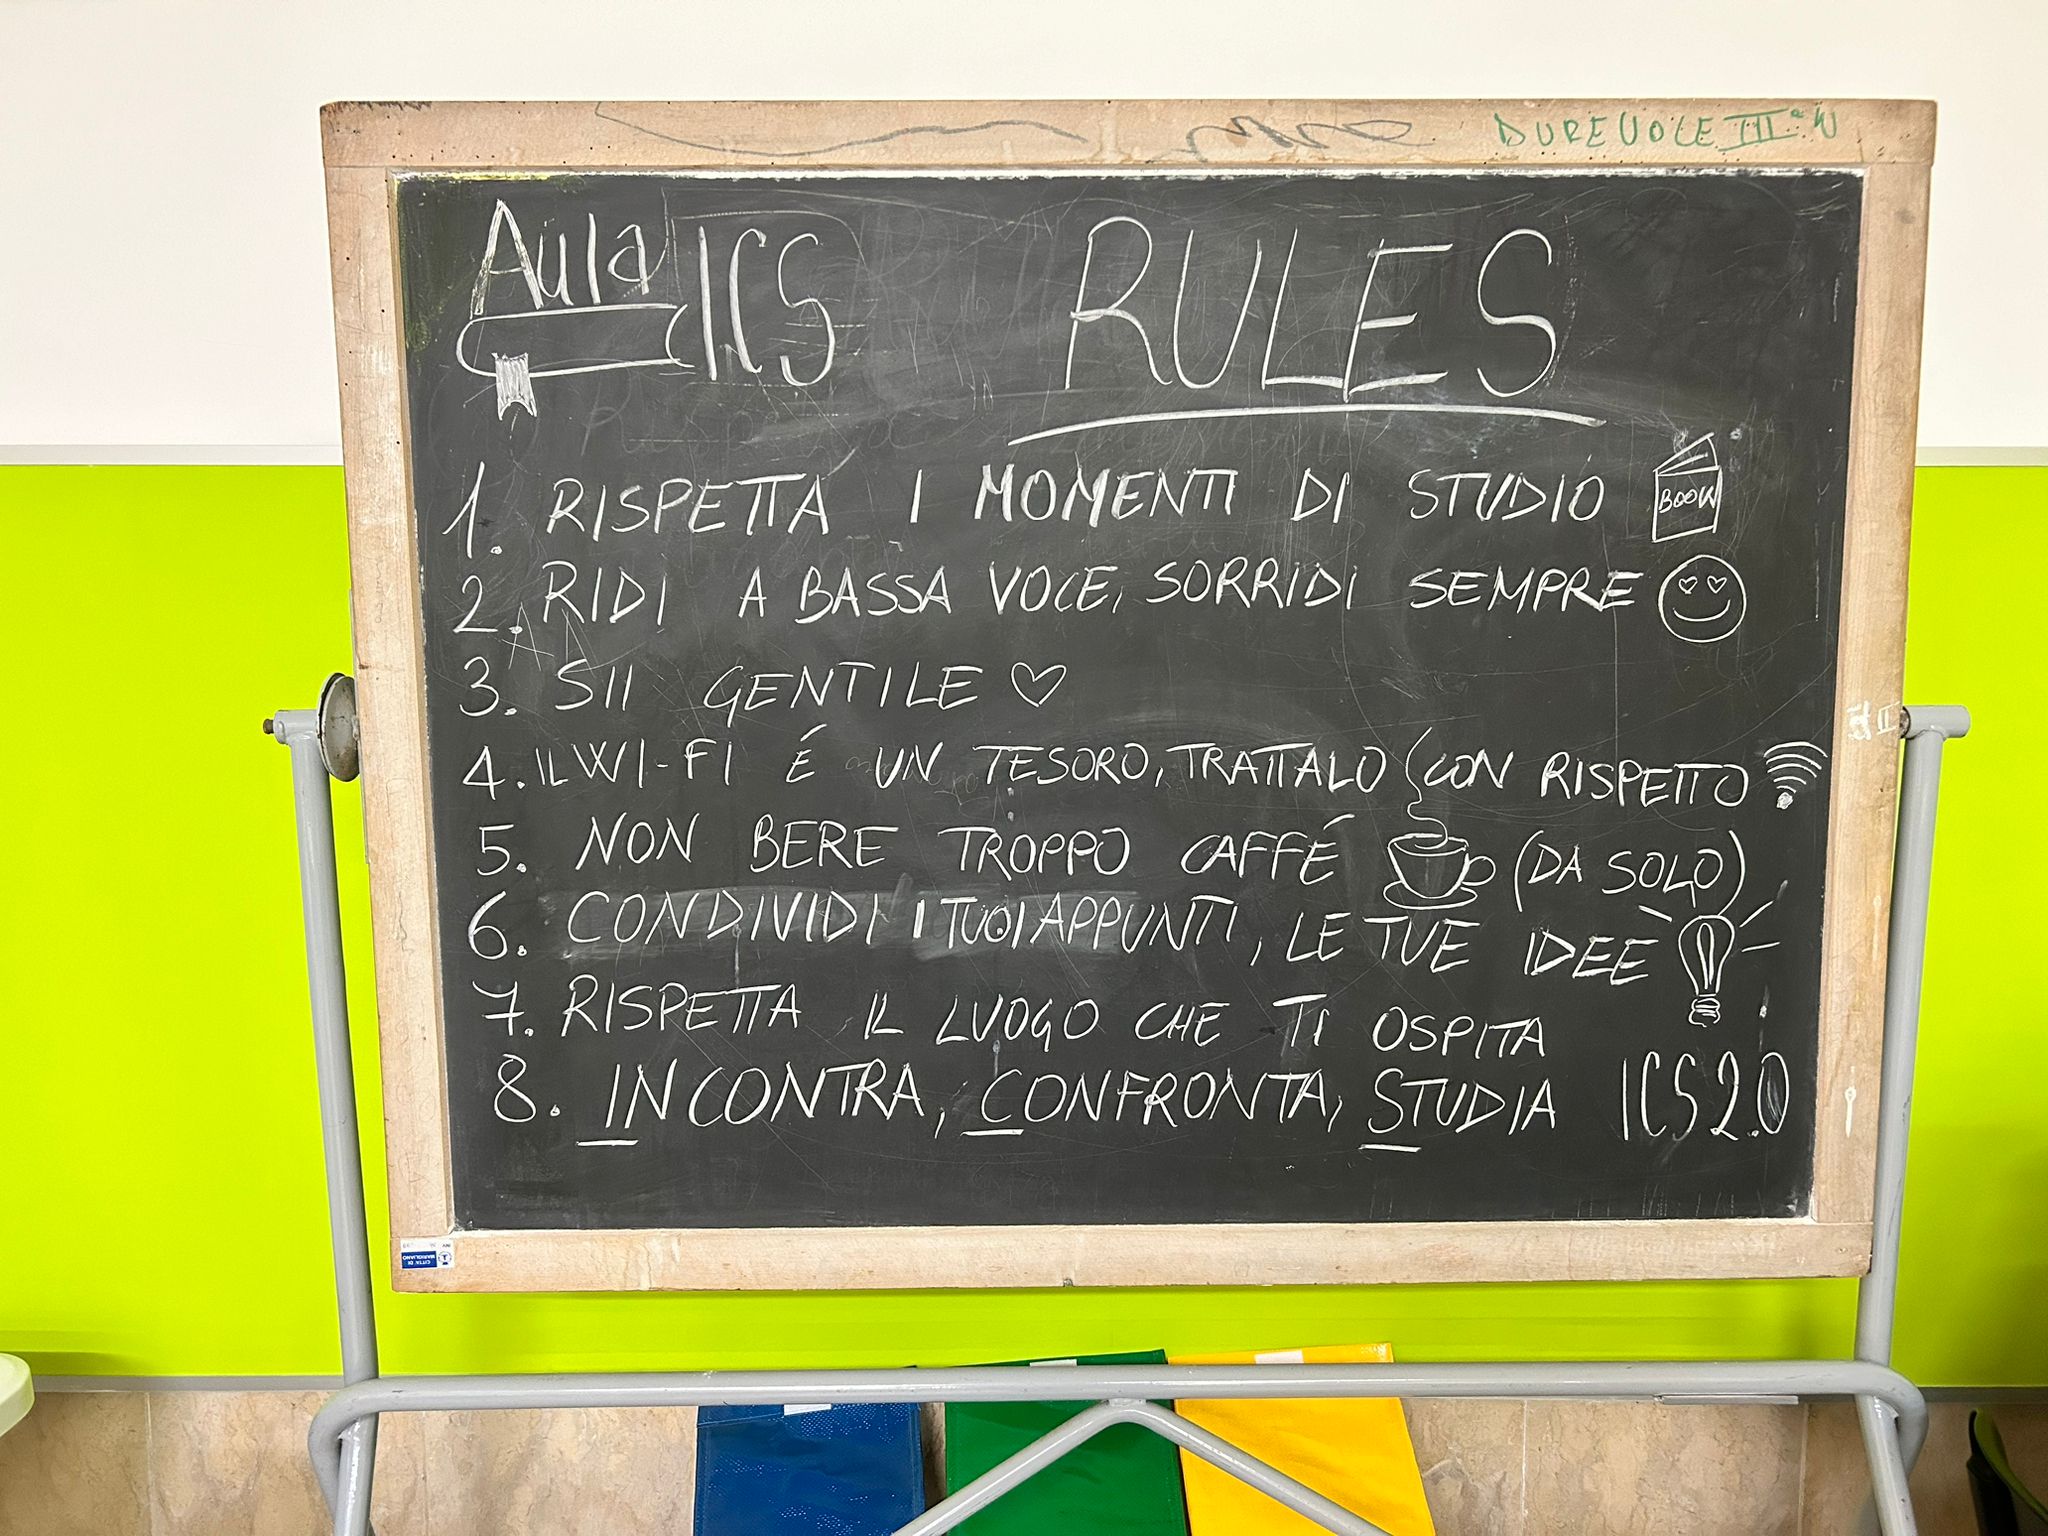 DUREVOLE III°
Aula ICS RULES
1. RISPETTA I MOMENTI DI STUDIO BOOK
2. RIDI A BASSA VOCE, SORRIDI SEMPRE
3. SII GENTILE
4. IL WI-FI É UN TESORO, TRATTALO CON RISPETTO
5. NON BERE TROPPO CAFFÉ (DA SOLO)
6. CONDIVIDI I TUOI APPUNTI, LE TUE IDEE
7. RISPETTA IL LUOGO CHE TI OSPITA
8. INCONTRA, CONFRONTA, STUDIA ICS 2.0
CITTA' DI
MARIGLIANO